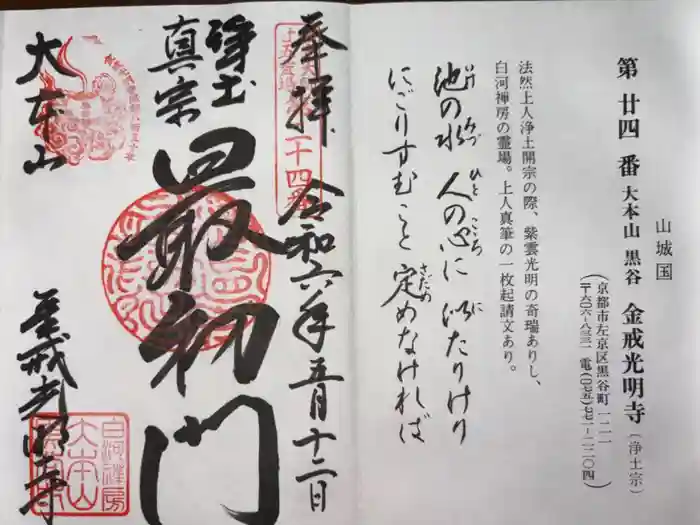 山城国
第廿四番 大本山 黒谷 金戒光明寺（浄土宗）
（京都市左京区黒谷町一二一
〒六〇六-八三三一 電(〇七五)七七一-二二〇四）
法然上人浄土開宗の際、紫雲光明の奇瑞ありし、
白河禅房の霊場。上人真筆の一枚起請文あり。
池の水 人の心に 似たりけり
いけ みづ ひと こころ に
にごりすむこと 定めなければ
さだめ
奉拝 令和六年五月十二日
二十四番
浄土
真宗
最初門
大本山
金戒光明寺
白河禅房
大本山